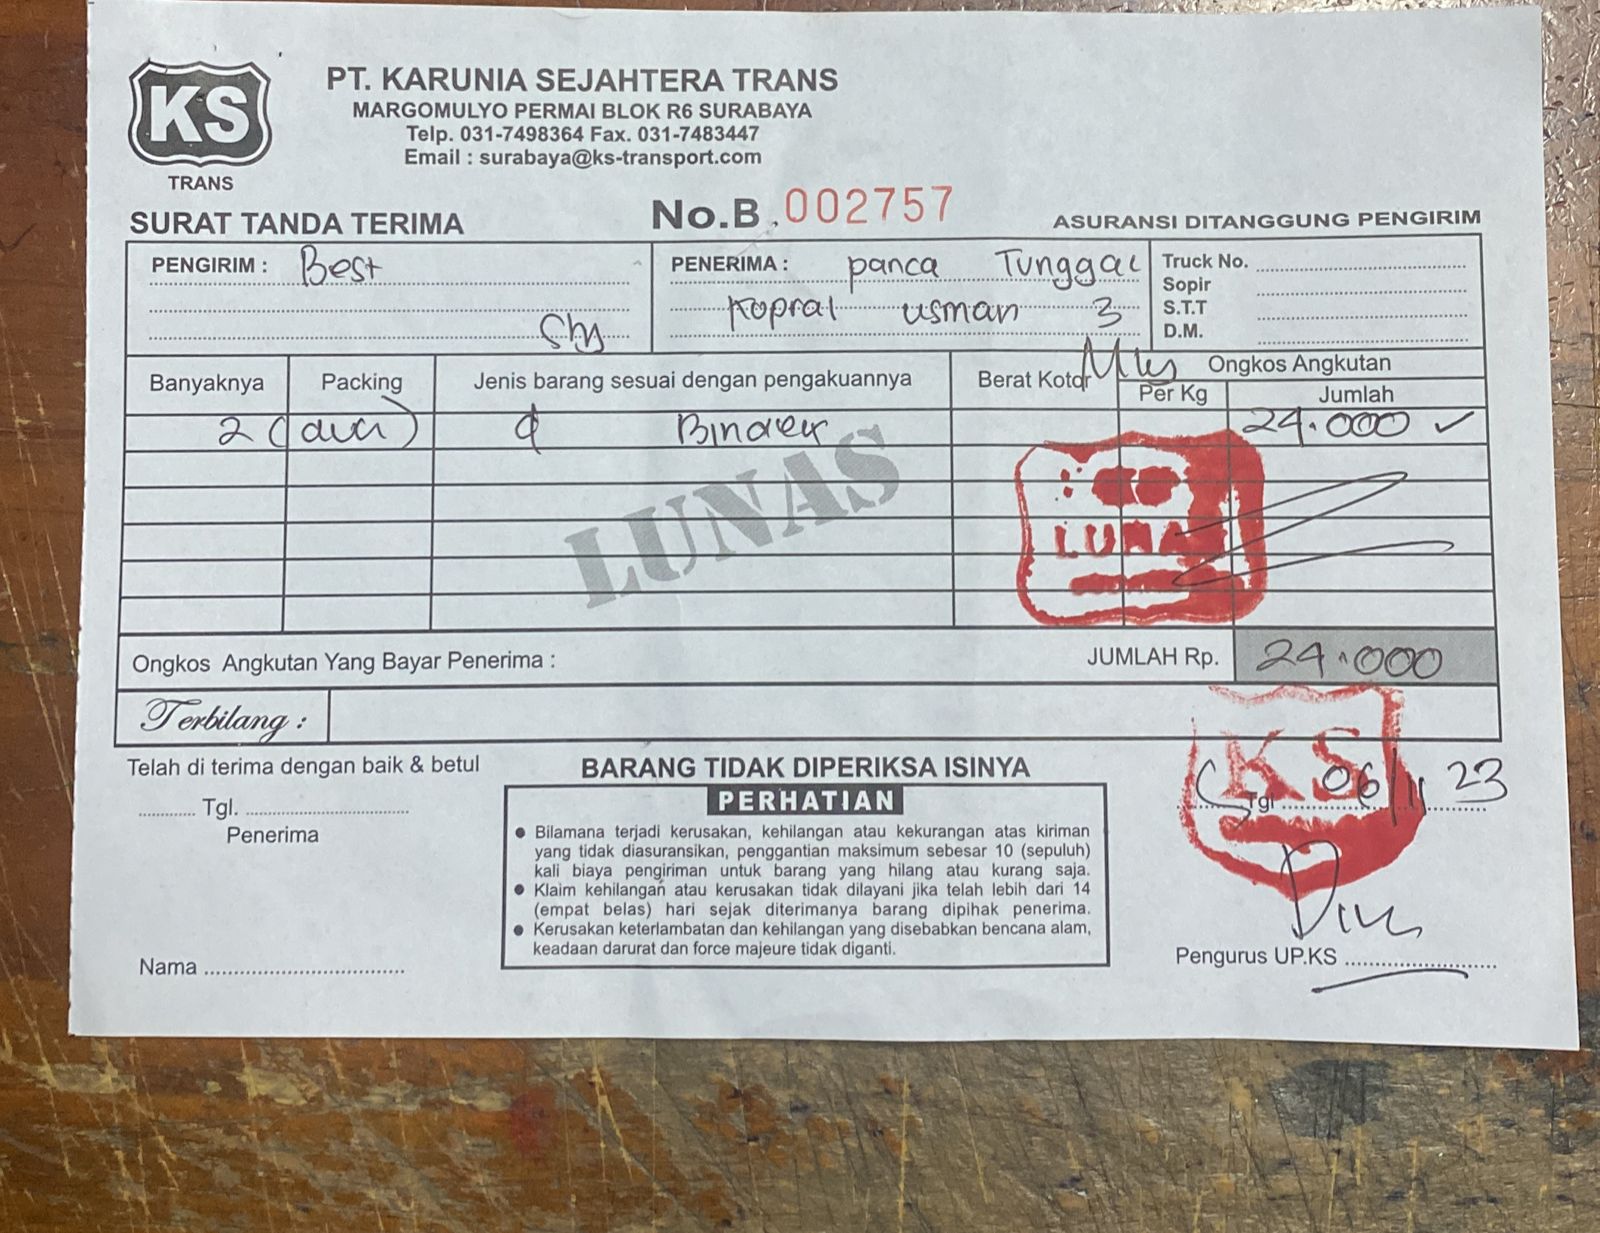 KS
TRANS
PT. KARUNIA SEJAHTERA TRANS
MARGOMULYO PERMAI BLOK R6 SURABAYA
Telp. 031-7498364 Fax. 031-7483447
Email : surabaya@ks-transport.com
SURAT TANDA TERIMA
No.B. 002757
ASURANSI DITANGGUNG PENGIRIM
PENGIRIM : Best
Sby
PENERIMA : panca Tunggal
Kopral usman 3
Truck No.
Sopir
S.T.T
D.M.
Banyaknya Packing Jenis barang sesuai dengan pengakuannya Berat Kotor Ongkos Angkutan
Per Kg Jumlah
2 (dua) Binder 24.000
LUNAS
LUNAS
Ongkos Angkutan Yang Bayar Penerima : JUMLAH Rp. 24.000
Terbilang :
Telah di terima dengan baik & betul
Tgl.
Penerima
Nama
BARANG TIDAK DIPERIKSA ISINYA
PERHATIAN
● Bilamana terjadi kerusakan, kehilangan atau kekurangan atas kiriman
yang tidak diasuransikan, penggantian maksimum sebesar 10 (sepuluh)
kali biaya pengiriman untuk barang yang hilang atau kurang saja.
● Klaim kehilangan atau kerusakan tidak dilayani jika telah lebih dari 14
(empat belas) hari sejak diterimanya barang dipihak penerima.
● Kerusakan keterlambatan dan kehilangan yang disebabkan bencana alam,
keadaan darurat dan force majeure tidak diganti.
KS
Tgl 06/11 23
Pengurus UP.KS